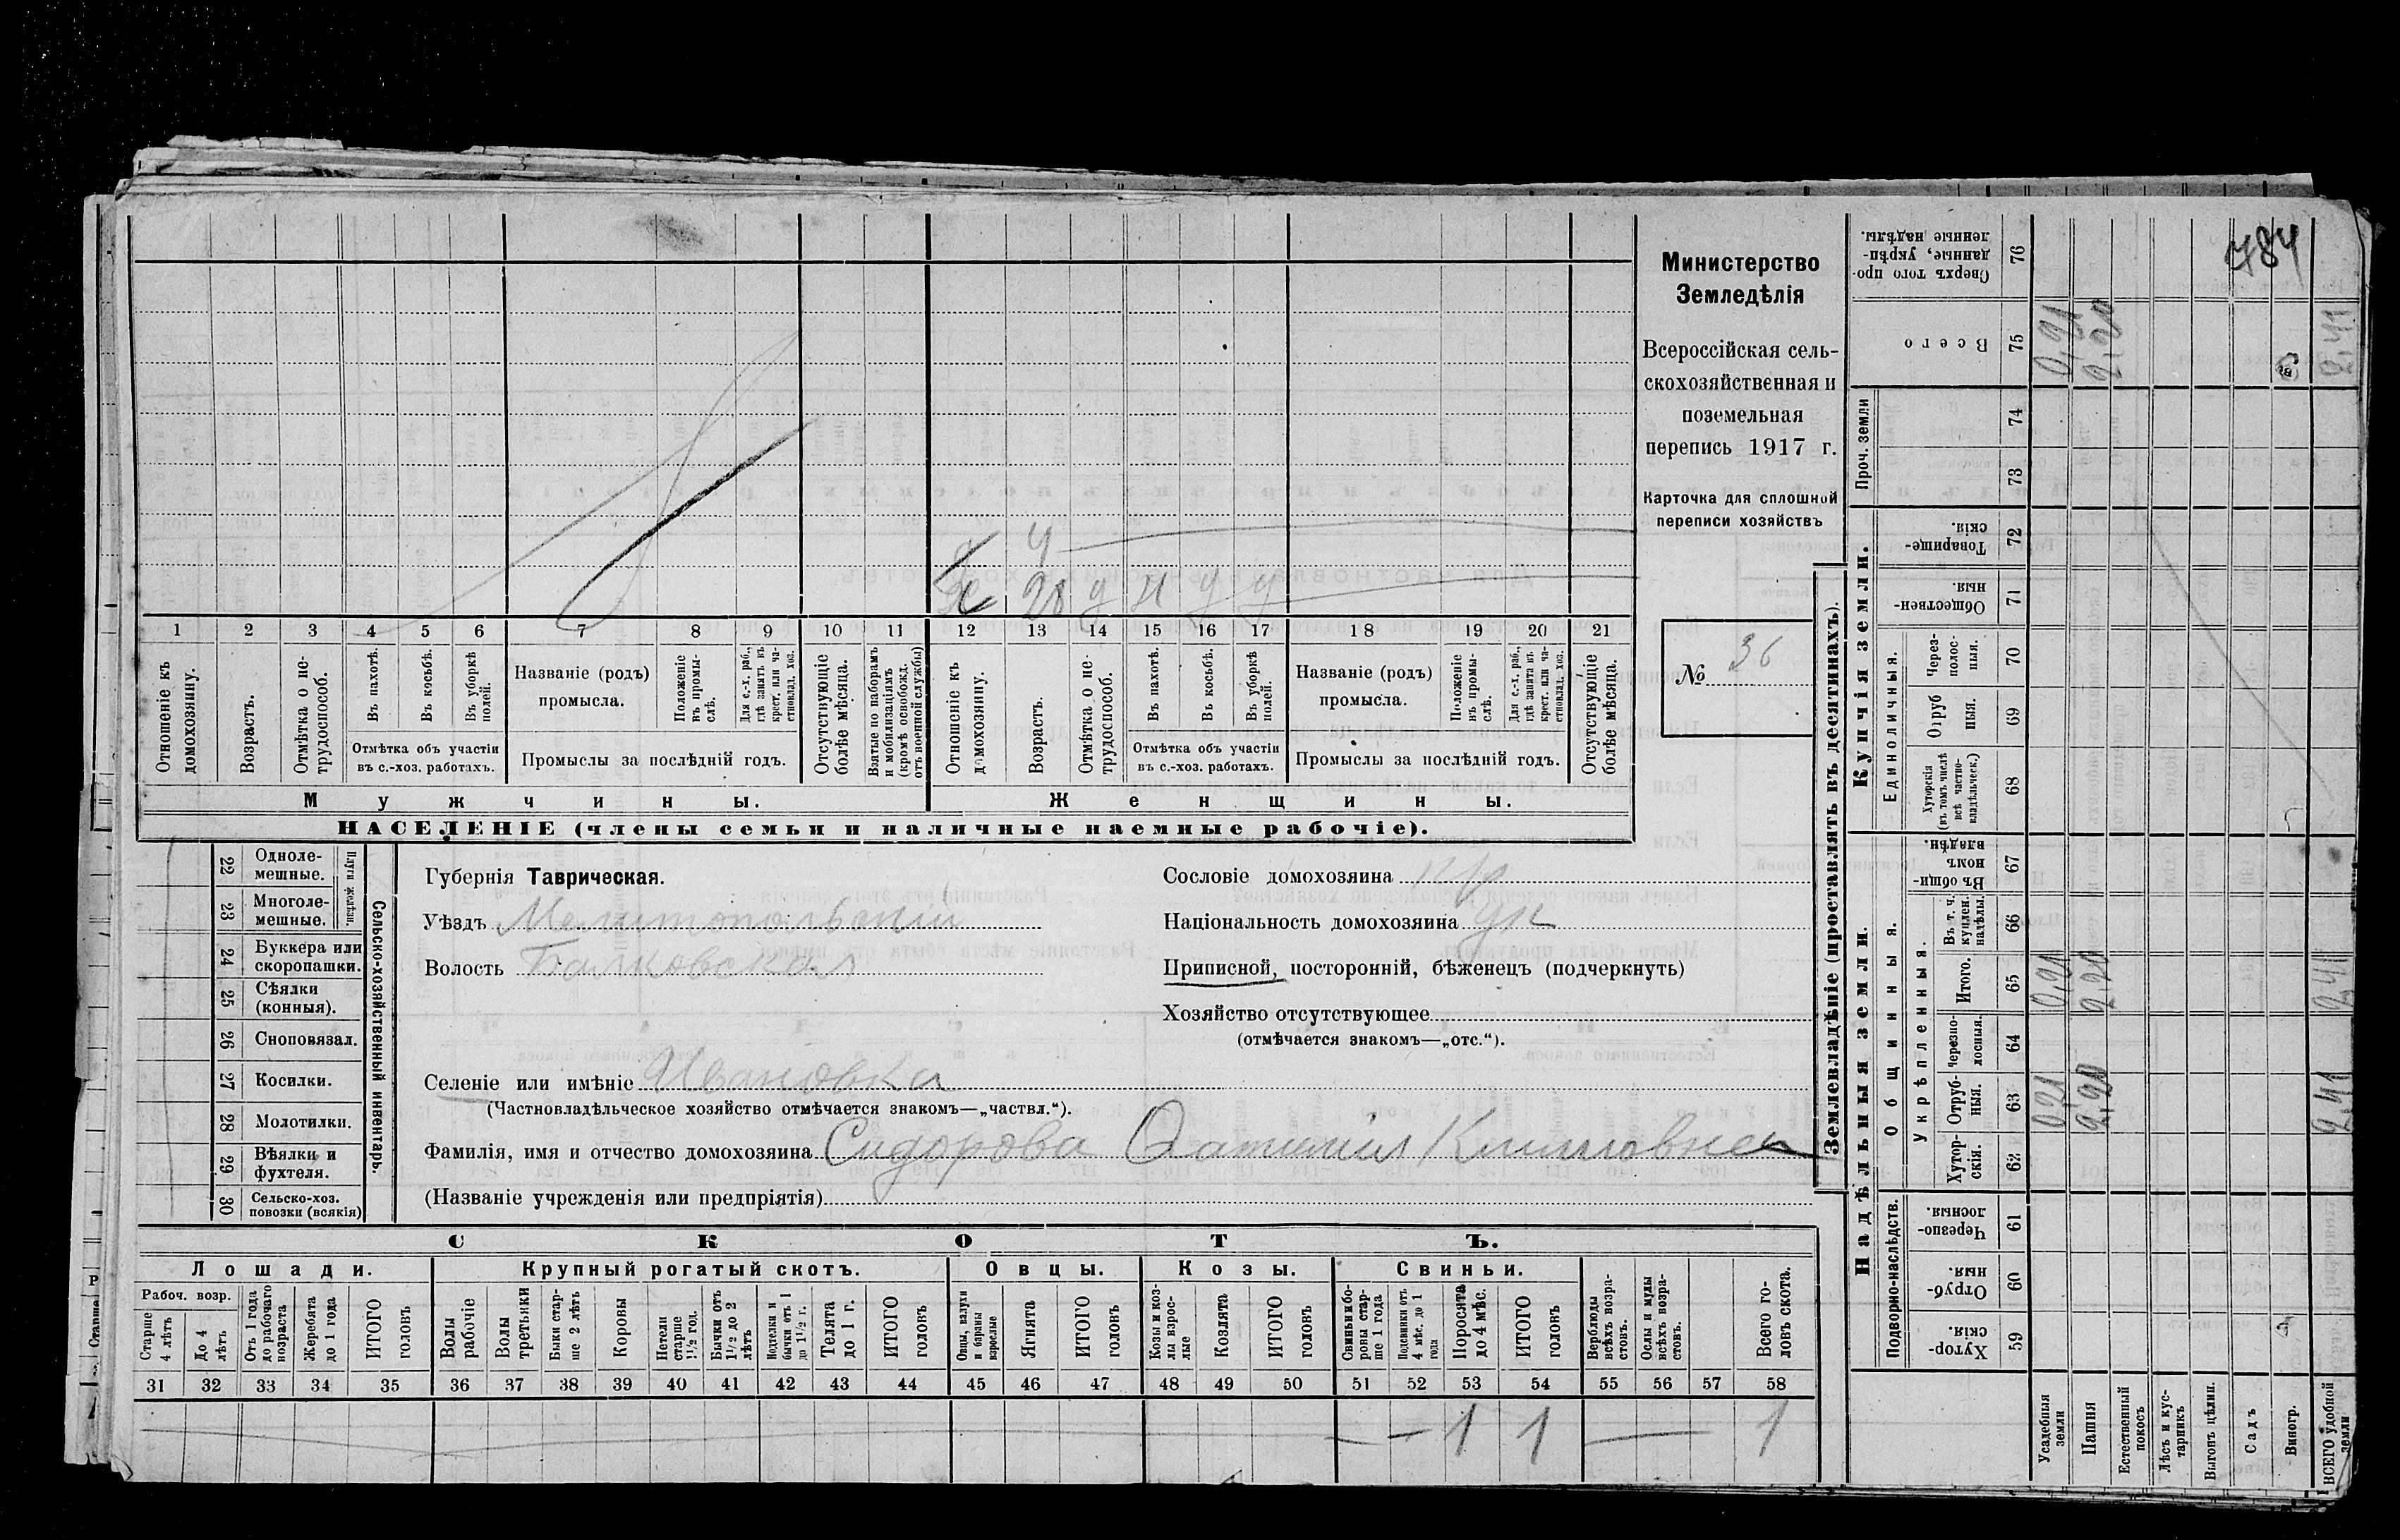 784
Министерство
Земледѣлія
Всероссійская сель-
скохозяйственная и
поземельная
перепись 1917 г.
Карточка для сплошной
переписи хозяйствъ
№ 36
4
Х 28 у н у у
1 2 3 4 5 6 7 8 9 10 11 12 13 14 15 16 17 18 19 20 21
Отношеніе къ домохозяину.
Возрастъ.
Отмѣтка о не-трудоспособ.
Въ пахотѣ.
Въ косьбѣ.
Въ уборкѣ полей.
Отмѣтка объ участіи
въ с.-хоз. работахъ.
Названіе (родъ)
промысла.
Положеніе въ промы-слѣ.
Для с.-х. раб., гдѣ занятъ въ крест. или ча-стновлад. хоз.
Промыслы за послѣдній годъ.
Отсутствующіе болѣе мѣсяца.
Взятые по наборамъ и мобилизаціямъ (кромѣ освобожд. отъ военной службы)
Отношеніе къ домохозяину.
Возрастъ.
Отмѣтка о не-трудоспособ.
Въ пахотѣ.
Въ косьбѣ.
Въ уборкѣ полей.
Отмѣтка объ участіи
въ с.-хоз. работахъ.
Названіе (родъ)
промысла.
Положеніе въ промы-слѣ.
Для с.-х. раб., гдѣ занята въ крест. или ча-стновлад. хоз.
Промыслы за послѣдній годъ.
Отсутствующіе болѣе мѣсяца.
Мужчины.
Женщины.
НАСЕЛЕНІЕ (члены семьи и наличные наемные рабочіе).
22 Одноле-мешные.
23 Многоле-мешные.
Плуги желѣзн.
24 Буккера или скоропашки.
25 Сѣялки (конныя).
26 Сноповязал.
27 Косилки.
28 Молотилки.
29 Вѣялки и фухтеля.
30 Сельско-хоз. повозки (всякія)
Сельско-хозяйственный инвентарь.
Губернія Таврическая.
Уѣздъ Мелитопольскій
Волость Балковская
Сословіе домохозяина кр
Національность домохозяина ук
Приписной, посторонній, бѣженецъ (подчеркнуть)
Хозяйство отсутствующее
(отмѣчается знакомъ—„отс.“).
Селеніе или имѣніе Ивановка
(Частновладѣльческое хозяйство отмѣчается знакомъ—„частвл.“).
Фамилія, имя и отчество домохозяина Сидорова Фатинія Климовна
(Названіе учрежденія или предпріятія)
СКОТЪ.
Лошади.
Крупный рогатый скотъ.
Овцы.
Козы.
Свиньи.
Рабоч. возр.
Старше 4 лѣтъ
До 4 лѣтъ
Отъ 1 года до рабочаго возраста
Жеребята до 1 года
ИТОГО головъ
Волы рабочіе
Волы третьяки
Быки стар-ше 2 лѣтъ
Коровы
Нетели старше 1½ год.
Бычки отъ 1½ до 2 лѣтъ
Нодтелки и бычки отъ 1 до 1½ г.
Телята до 1 г.
ИТОГО головъ
Овцы, валухи и бараны взрослые
Ягнята
ИТОГО головъ
Козы и коз-лы взрос-лые
Козлята
ИТОГО головъ
Свиньи и бо-ровы стар-ше 1 года
Подсвинки отъ 4 мѣс. до 1 года
Поросята до 4 мѣс.
ИТОГО головъ
Верблюды всѣхъ возра-стовъ.
Ослы и мулы всѣхъ возра-стовъ.
Всего го-ловъ скота.
31 32 33 34 35 36 37 38 39 40 41 42 43 44 45 46 47 48 49 50 51 52 53 54 55 56 57 58
1 1 1
Землевладѣніе (проставлять въ десятинахъ).
Сверхъ того про-данные, укрѣп-ленные надѣлы. 76
Всего 75
0,21 2,20 2,41
Проч. земли
74
73
Купчія земли.
Товарище-скія. 72
Обществен-ныя. 71
Единоличныя.
Через-полос-ныя. 70
Отруб ныя. 69
Хуторскія (въ томъ числѣ всѣ частно-владѣльческ.) 68
Надѣльныя земли.
Общинныя.
Въ общи-номъ владѣн. 67
Укрѣпленныя.
Въ т. ч. куплен. надѣлы. 66
Итого. 65
0,21 2,20 2,41
Черезпо-лосныя. 64
Отруб-ныя. 63
0 21 2,20 2,41
Хутор-скія. 62
Подворно-наслѣдств.
Черезпо-лосныя. 61
Отруб-ныя. 60
Хутор-скія. 59
Усадебныя земли
Пашня
Естественный покосъ
Лѣсъ и кус-тарникъ
Выгонъ цѣлин.
Садъ
Виногр.
ВСЕГО удобной земли